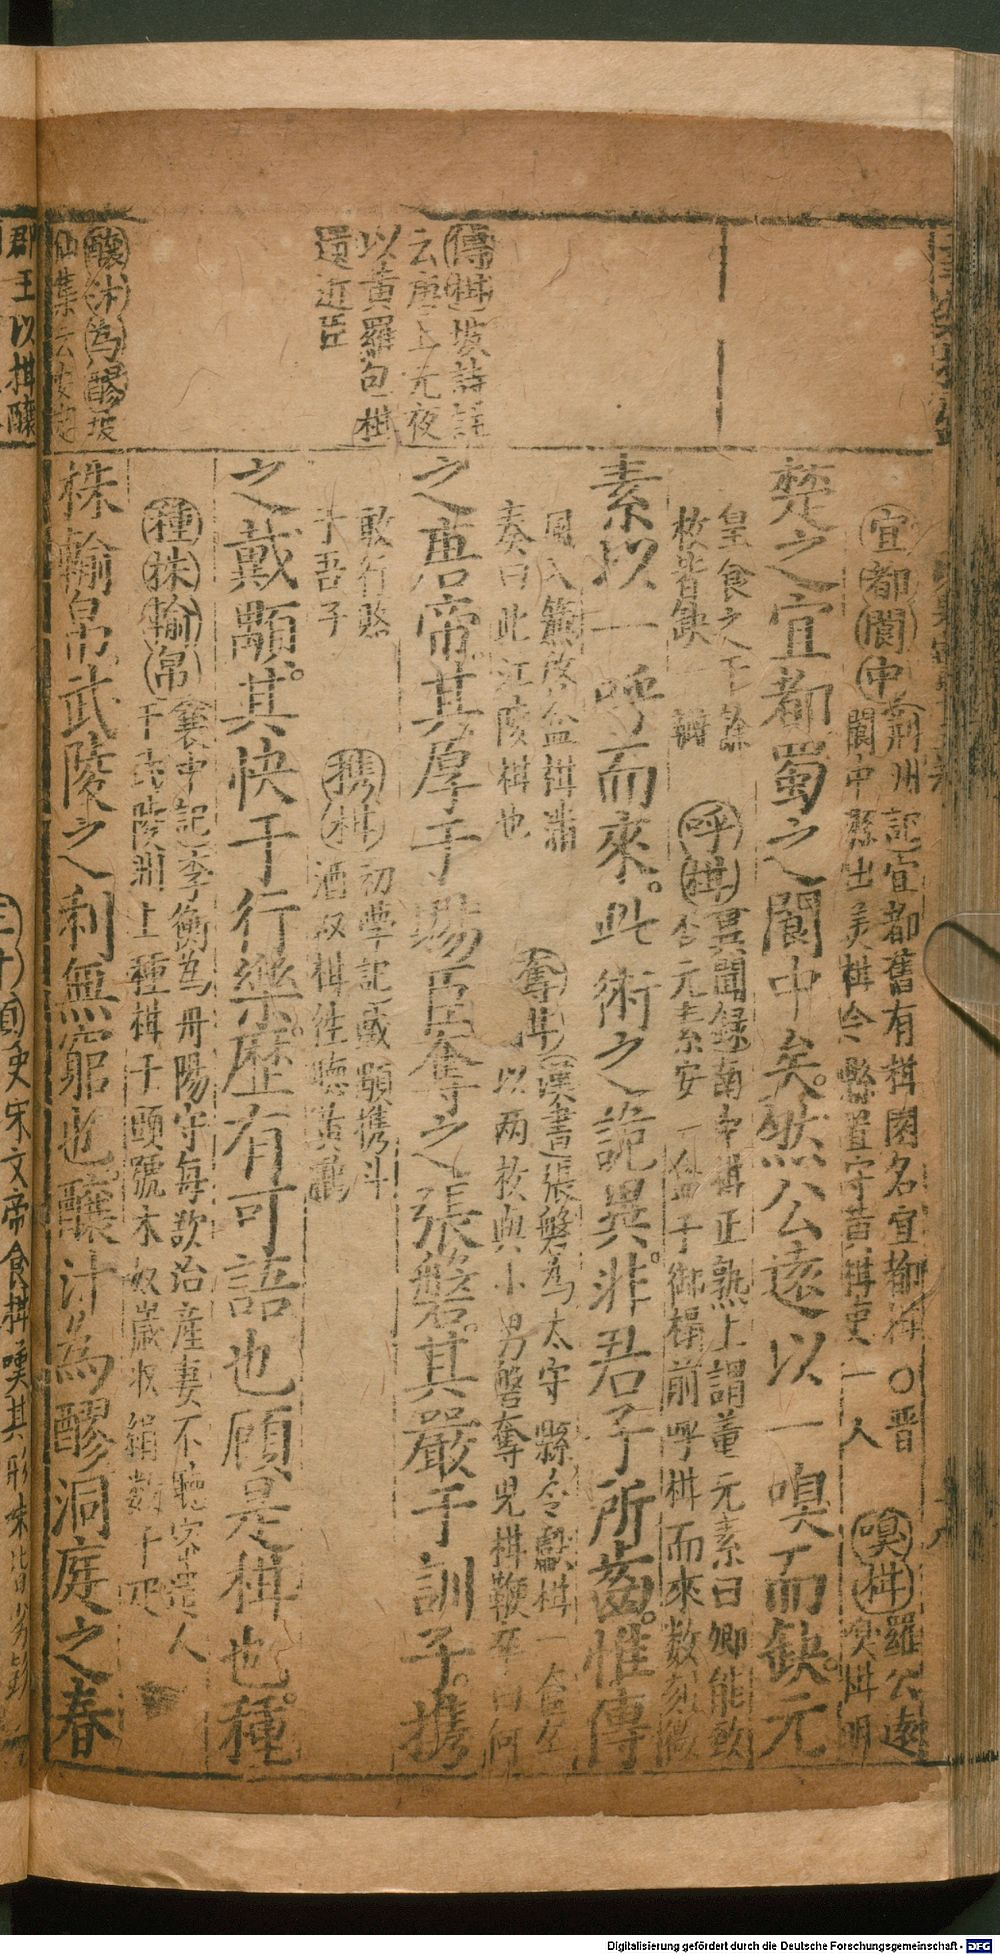 宜都閬中荊州記宜都舊有柑園名宜都柑○晋
閬中縣出美柑令縣置守黄柑吏一人
嗅柑羅公遠
嗅柑明
楚之宜都蜀之閬中矣。然公遠以一嗅而缺。元
皇食之千餘
枚皆缺一瓣
呼柑異聞録南中柑正熟上謂董元素曰卿能致
否元素安一合于御榻前呼柑而來数刻微
素以一呼而來。此術之詭異。非君子所齒。惟傳
風入簾啓盒柑滿
奏曰此江陵柑也
奪柑漢書張磐為太守縣令獻柑一奩
以两枚與小男磐奪児柑鞭卒曰何
之唐帝。其厚于賜臣。奪之張磐。其嚴于訓子。携
敢行賂
于吾子
携柑初學記戴顒携斗
酒双柑往聴黄鸝
之戴顒。其快于行樂。歷有可語也顧是柑也。種
種株輸帛襄中記李衡為丹陽守每欲治産妻不聴密遣人
于武陵洲上種柑千頭號木奴歲收絹数千疋
株輸帛武陵之利無窮也醸汁為醪洞庭之春
傳柑坡詩註
云唐上元夜
以黄羅包柑
遺近臣
醸汁為醪坡
仙集云安定
郡王以柑醸
三寸顱史宋文帝食柑嘆其形味皆劣
Digitalisierung gefördert durch die Deutsche Forschungsgemeinschaft - DFG